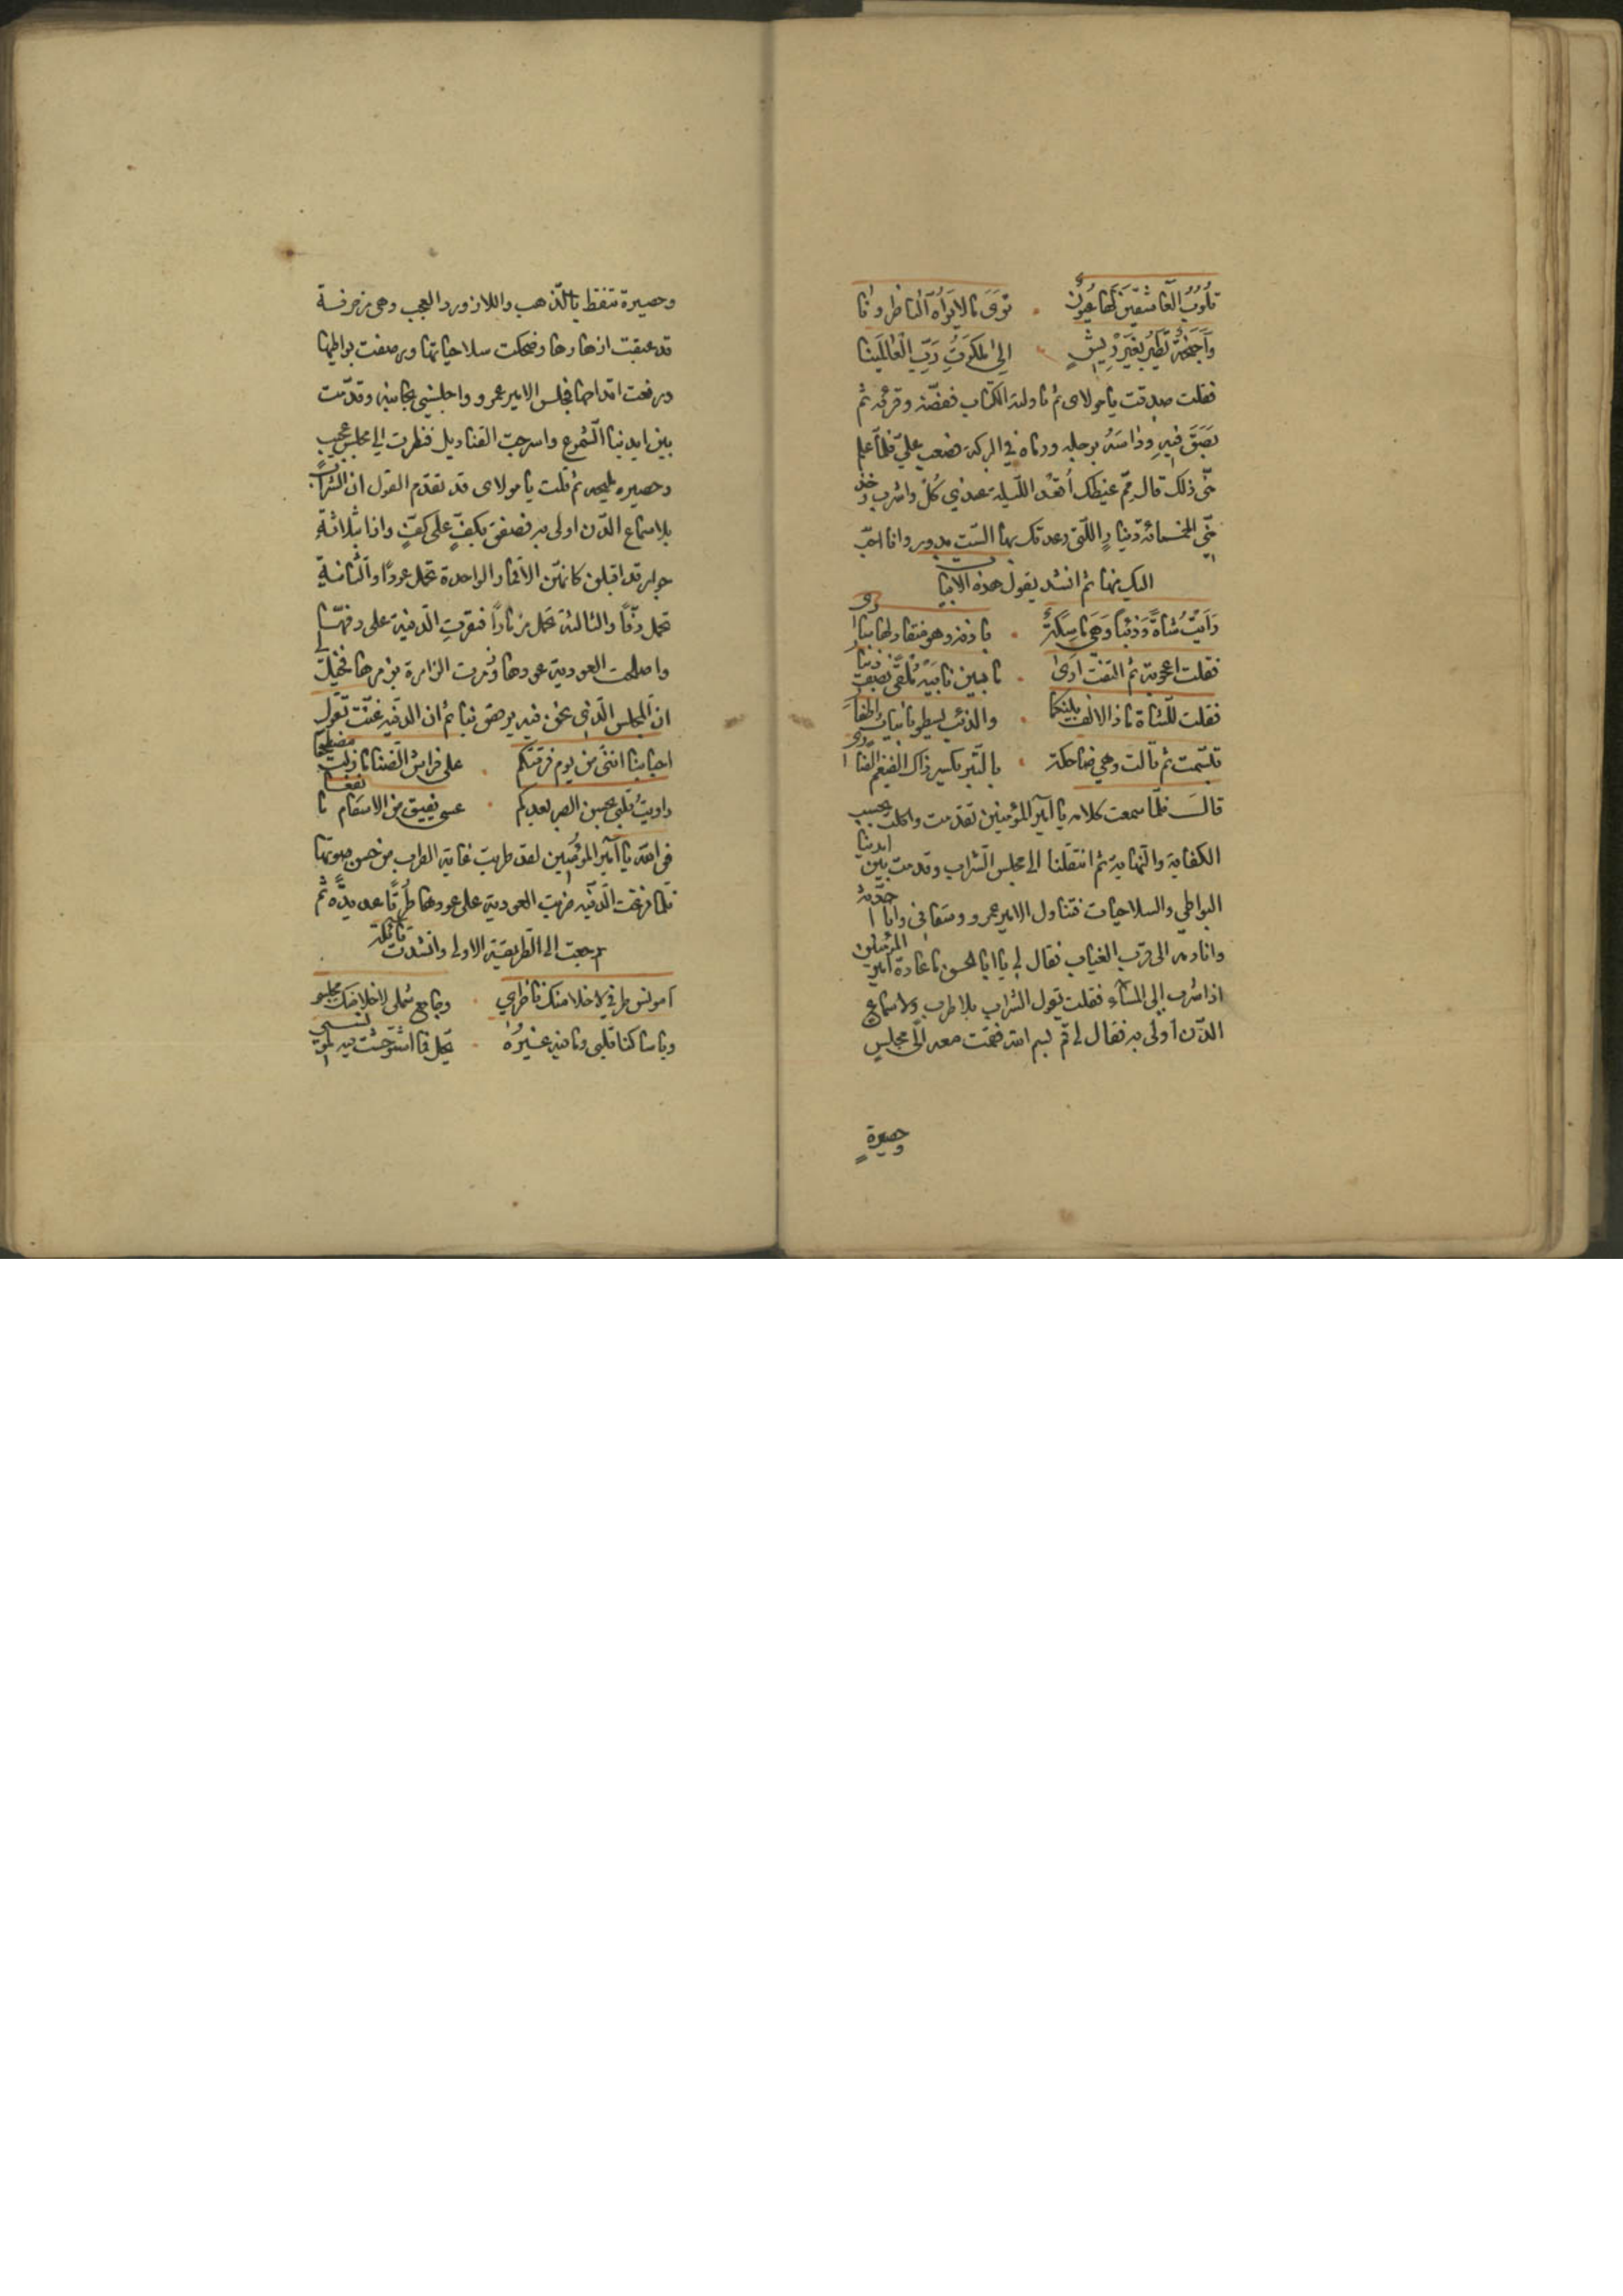 قلوب العاشقين لها عيون ۰ ترى ما لا يراه الناظرونا
وأجنحة تطير بغير ريش ۰ الى ملكوت رب العالمينا
فقلت صدقت يا مولاى ثم ناولته الكتاب ففضّه وقرئه ثم
بصق فيه وداسه برجله ورماه في البركة فصعب عليّ فلمّا علم
منّى ذلك قال قم غيظك اقعد الليلة عندي كل واشرب وخذ
منّى الخمسمائة دينار اللّتى وعدتك بها الست بدور وانا احبّ
اليك منها ثم انشد يقول هذه الابيات
رأيت شاة وذئبا وهي ماسكة ۰ باذنه وهو منقاد لها سارى
فقلت اعجوبة ثم التفت ارى ۰ ما بين نابيه ملقى نصف دينار
فقلت للشاة ماذا الالف بينكما ۰ والذئب يسطو بانياب واظفار
تبسّمت ثم قالت وهي ضاحكة ۰ بالتبر يكسر ذاك الضيغم الضارى
قال فلمّا سمعت كلامه يا امير المؤمنين تقدمت واكلت بحسب
الكفاية والنهاية ثم انتقلنا الى مجلس الشراب وقدمت بين ايدينا
البواطي والسلاحيات فتناول الامير عمرو وسقانى وانا احدّثه
وانادمه الى قرب الغياب فقال لي يا ابا الحسن ما عادة امير المؤمنين
اذا شرب الى المساء فقلت يقول الشراب بلا طرب ولا سماع
الدّن اولى به فقال لي قم بسم الله فقمت معه الى مجلس
وحصيرة
وحصيرة تنقط بالذهب واللازورد العجب وهى مزخرفة
قد عبقت ازهارها وضحكت سلاحياتها ورصفت بواطيها
ورفعت اقداحها فجلس الامير عمرو واجلسنى بجانبه وقدّمت
بين ايدينا الشموع واسرجت القناديل فنظرت الى مجلس عجيب
وحصيره مليحه ثم قلت يا مولاى قد تقدم القول ان الشراب
بلا سماع الدّن اولى به فصفق بكفّ على كفّ واذا بثلاثة
جوار قد اقبلن كانهنّ الاقمار الواحدة تحمل عودًا والثانية
تحمل دفًّا والثالثة تحمل مزمارًا فنقرت الدفية على دفّها
واصلحت العودية عودها وزمرت الزامرة بزمرها فخيل لي
ان المجلس الّذى نحن فيه يرقص بنا ثم ان الدفيه غنّت تقول
احبابنا اننى من يوم فرقتكم ۰ على فراش الضنا ما زلت مضطجعا
داويت قلبى بحسن الصبر بعدكم ۰ عسى يفيق من الاسقام ما نفعا
فوالله يا امير المؤمنين لقد طربت غاية الطرب من حسن صوتها
فلمّا فرغت الدفيه ضربت العودية على عودها طرقًا عديدة ثم
رجعت الى الطريقة الاولى وانشدت قائلة
امونس طرفي لا خلا منك ناظري ۰ وجامع شملى لا خلا منك مجلسى
ويا ساكنا قلبى وما فيه غيره